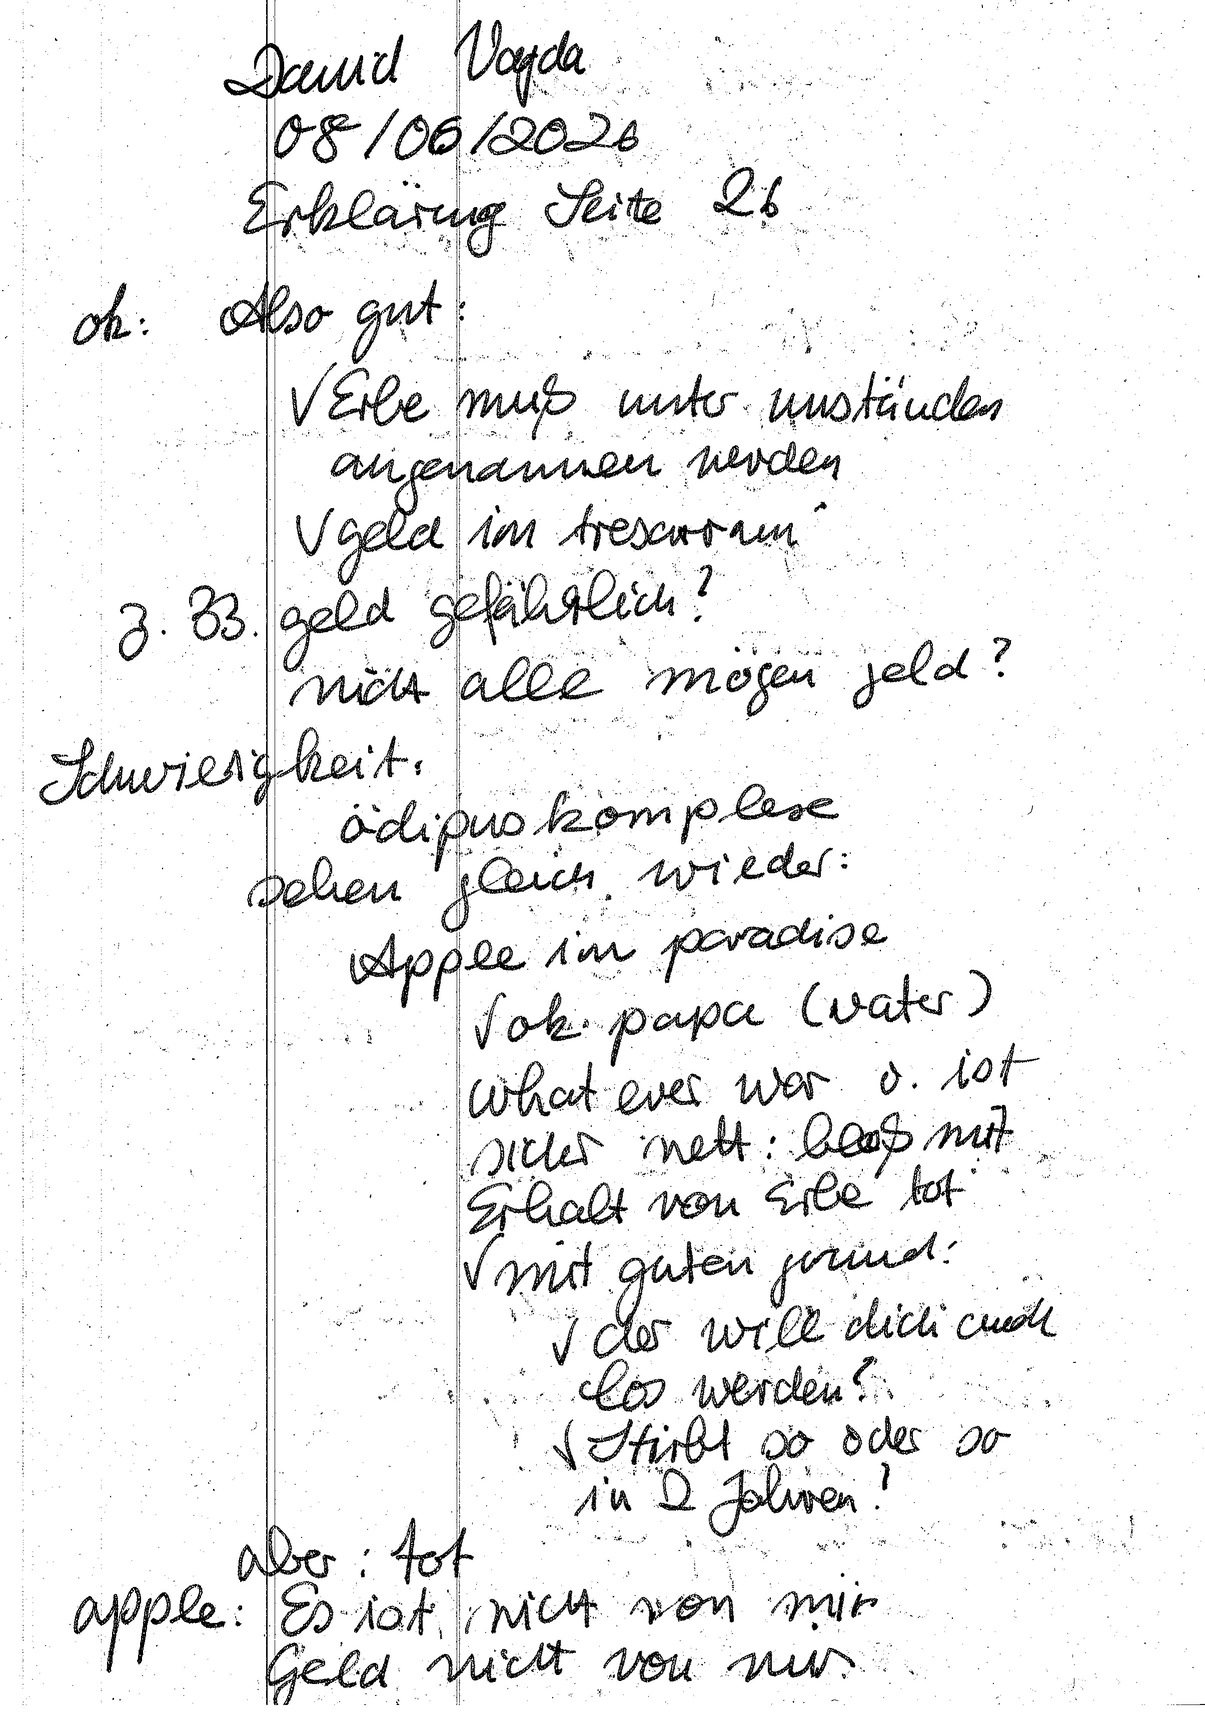 David Vajda
08/06/2026
Erklärung Seite 26
ok: Also gut:
√ Erbe muß unter umständen
angenommen werden
√ geld im tresorraum
z. B. geld gefährlich?
nicht alle mögen geld?
Schwierigkeit:
ödipuskomplexe
sehen gleich wieder:
Apple im paradise
√ ok. papa (vater)
What ever war o. ist
sicher nett: bloß mit
Erhalt von Erbe tot
√ mit guten grund:
√ der will dich auch
los werden?
√ Stirbt so oder so
in 2 Jahren?
aber: tot
apple: Es ist nicht von mir
Geld nicht von mir.